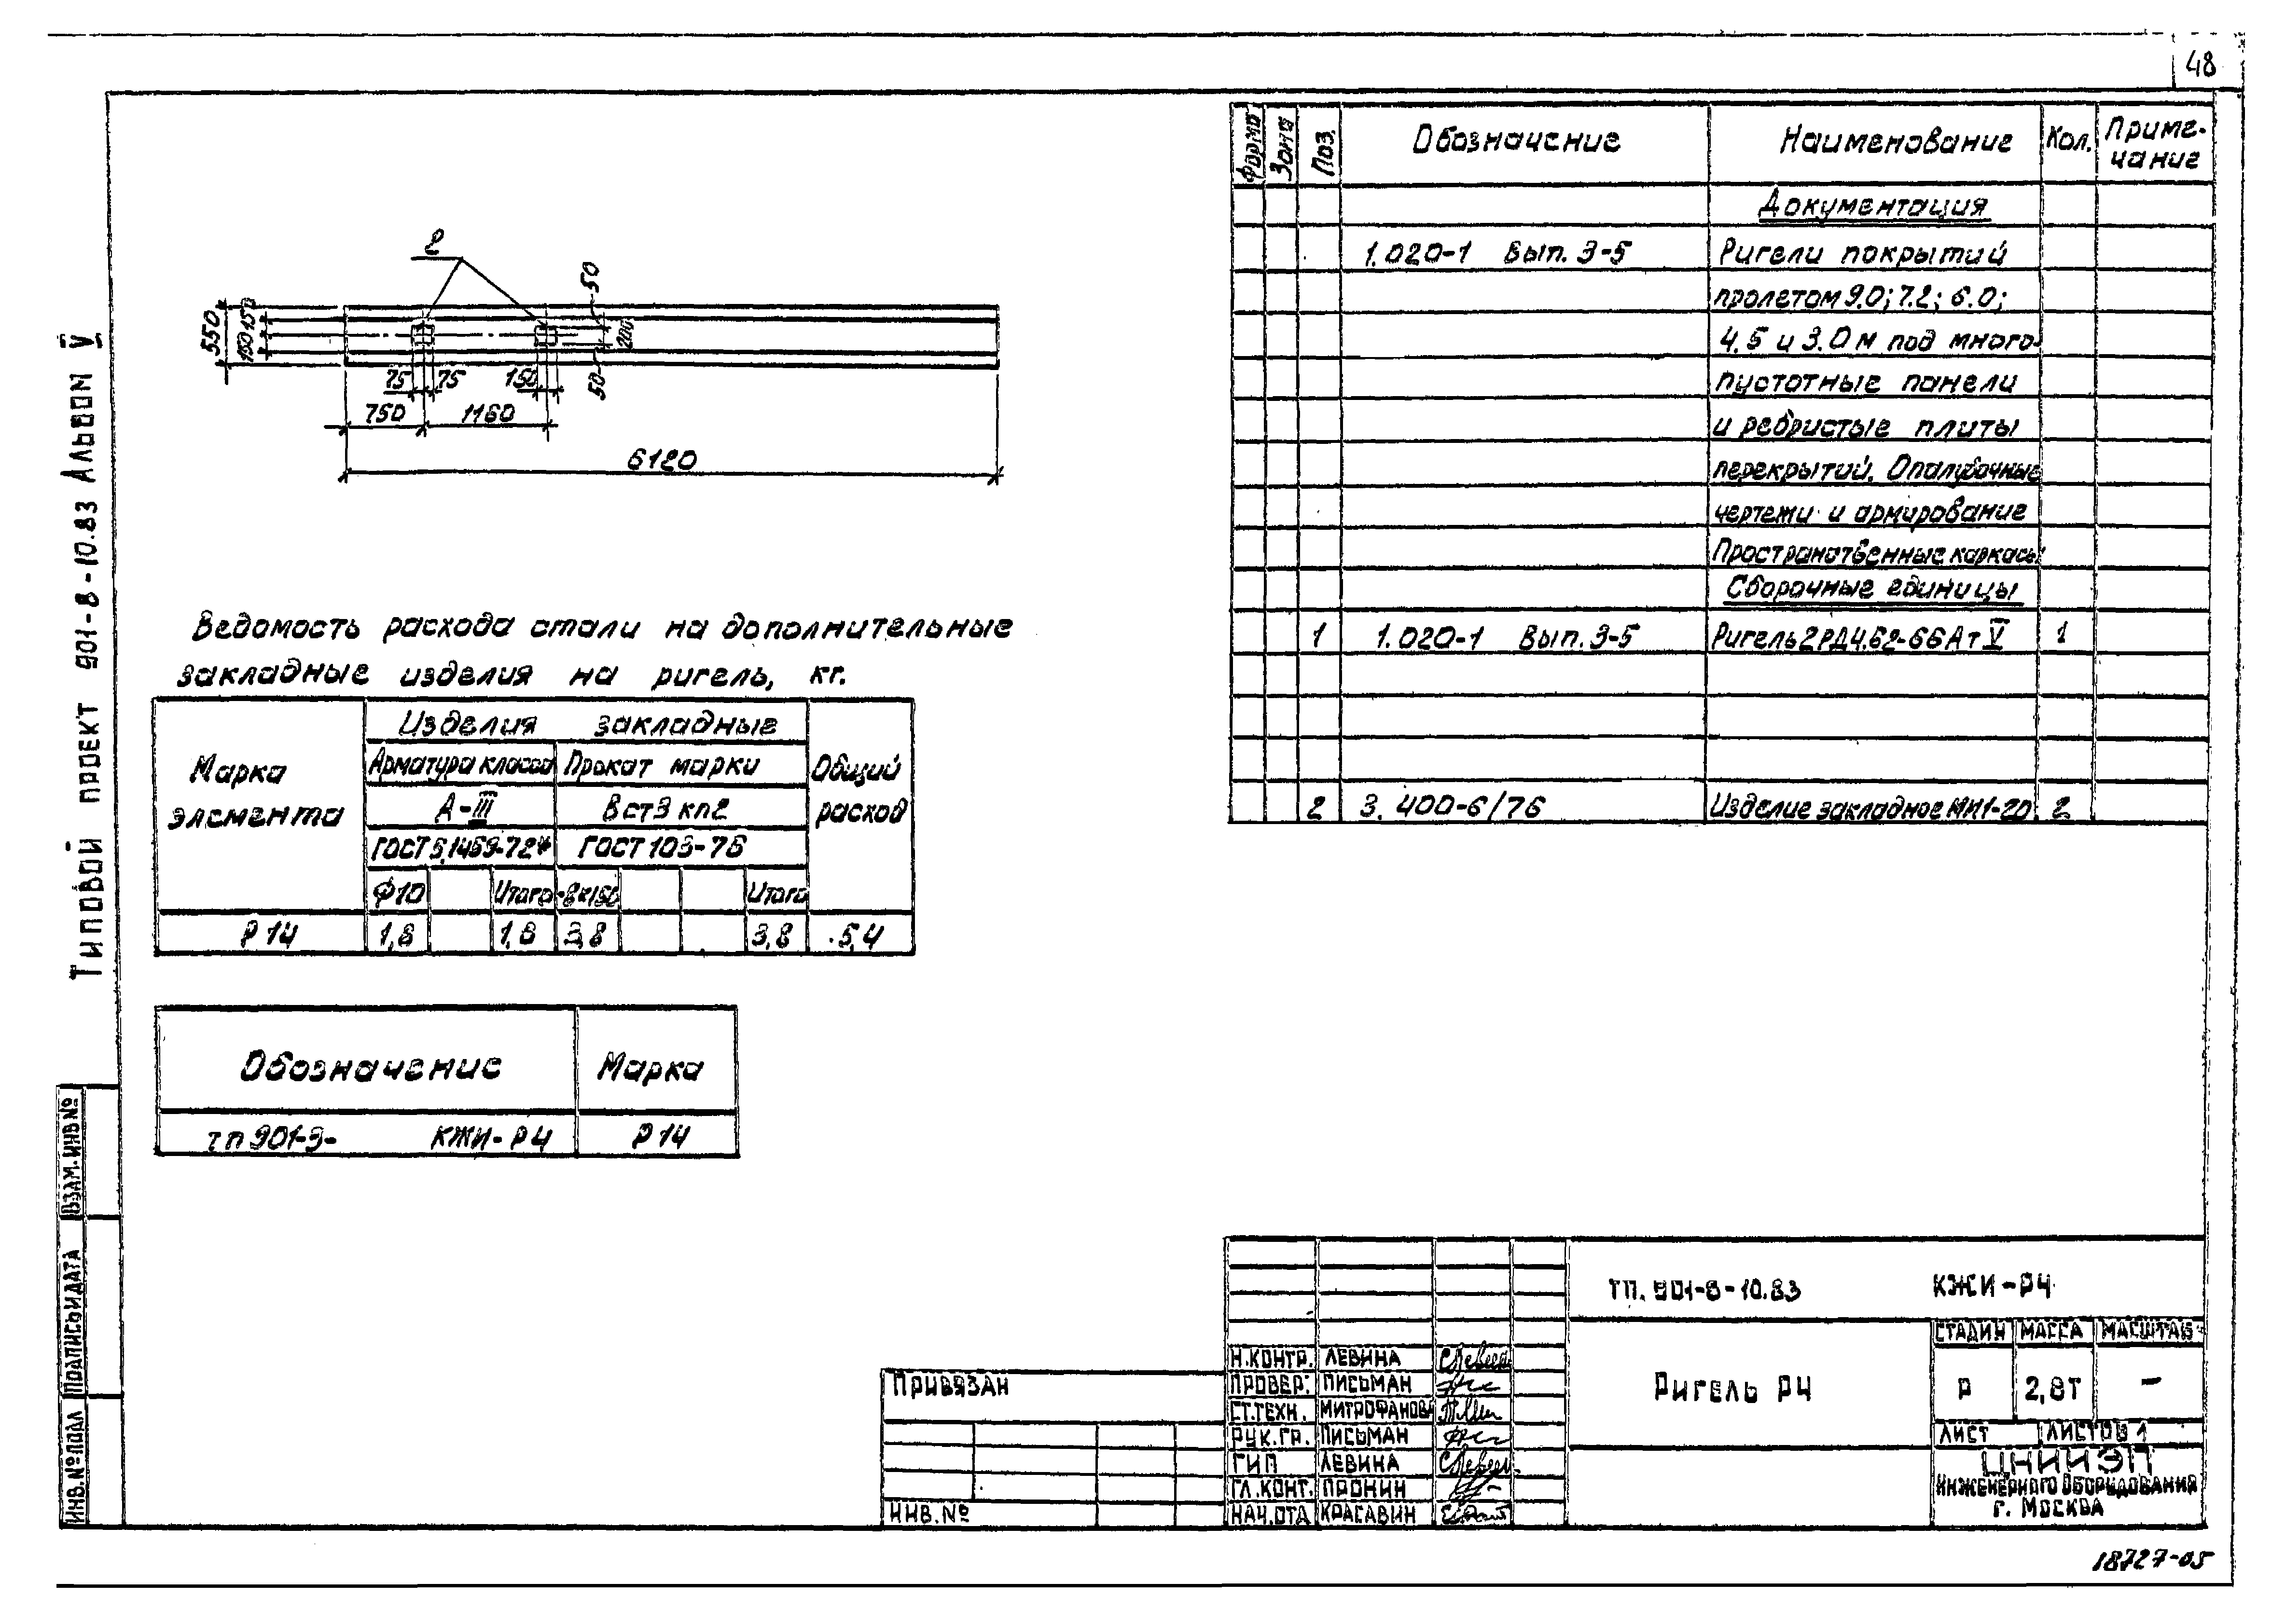 48
Типовой проект 901-8-10.83 Альбом V
2
550
150 150
50
200
50
75 75 150
750 1160
6120
Форма Зона Поз. Обозначение Наименование Кол. Приме-
чание
Документация
1.020-1 Вып. 3-5 Ригели покрытий
пролетом 9.0; 7.2; 6.0;
4.5 и 3.0 м под много-
пустотные панели
и ребристые плиты
перекрытий. Опалубочные
чертежи и армирование
Пространственные каркасы
Сборочные единицы
1 1.020-1 Вып. 3-5 Ригель 2РД4.62-66АтV 1
2 3.400-6/76 Изделие закладное МИ1-20 2
Ведомость расхода стали на дополнительные
закладные изделия на ригель, кг.
Марка
элемента
Изделия закладные
Общий
расход
Арматура класса Прокат марки
А-III ВстЗ кп2
ГОСТ 5.1459-72* ГОСТ 103-76
Ф10 Итого -8х150 Итого
Р14 1,6 1,6 3,8 3,8 5,4
Обозначение Марка
тп 901-3- КЖИ-Р4 Р14
ИНВ.№ подл Подпись и дата Взам.инв№
Привязан
ИНВ.№
Н.КОНТР. ЛЕВИНА
ПРОВЕР. ПИСЬМАН
СТ.ТЕХН. МИТРОФАНОВА
РУК.ГР. ПИСЬМАН
ГИП ЛЕВИНА
ГЛ.КОНТ. ПРОНИН
НАЧ.ОТД КРАСАВИН
ТП. 901-8-10.83 КЖИ-Р4
Ригель Р4
СТАДИЯ МАССА МАСШТАБ
Р 2,8Т —
ЛИСТ ЛИСТОВ 1
ЦНИИЭП
ИНЖЕНЕРНОГО ОБОРУДОВАНИЯ
Г. МОСКВА
18727-05